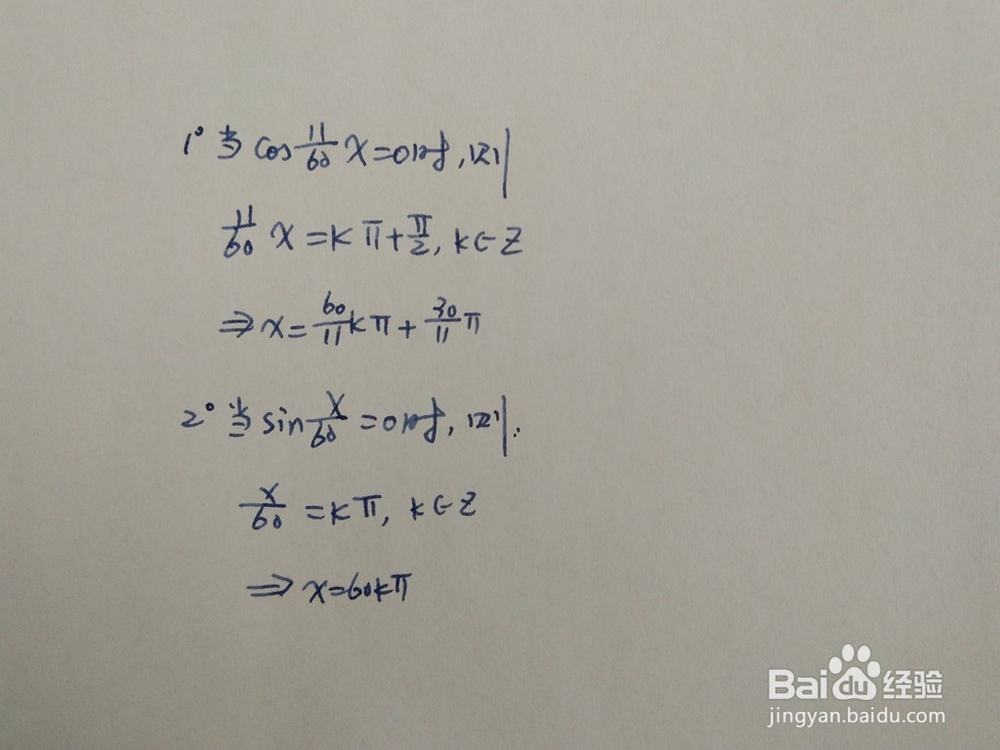 1° 当 cos 11/60 x=0时,则
11/60 x=kπ+π/2, k∈Z
⇒x=60/11kπ+30/11π
2° 当 sin x/60=0时,则.
x/60=kπ, k∈Z
⇒x=60kπ
Baidu经验
jingyan.baidu.com